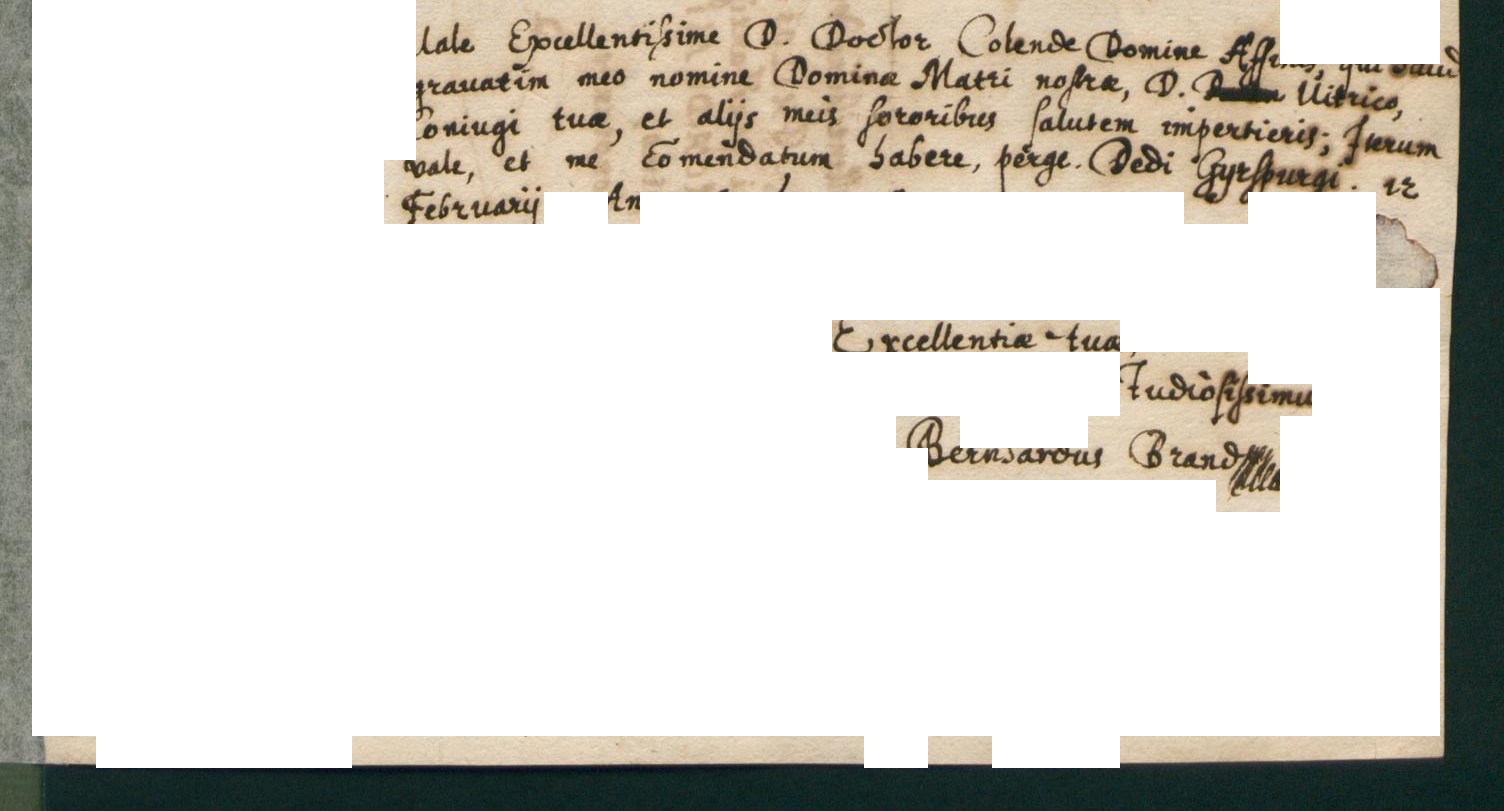 Vale Excellentissime D. Doctor Colende Domine Affinis, qui haud
gravatim meo nomine Dominæ Matri nostræ, D. Vitrico,
Coniugi tuæ, et alijs meis sororibus salutem impertieris; Iterum
vale, et me comendatum habere, perge. Dedi Gyrspurgi. 12
Februarij An
Excellentiæ tuæ
studiosissimu
Bernhardus Brand